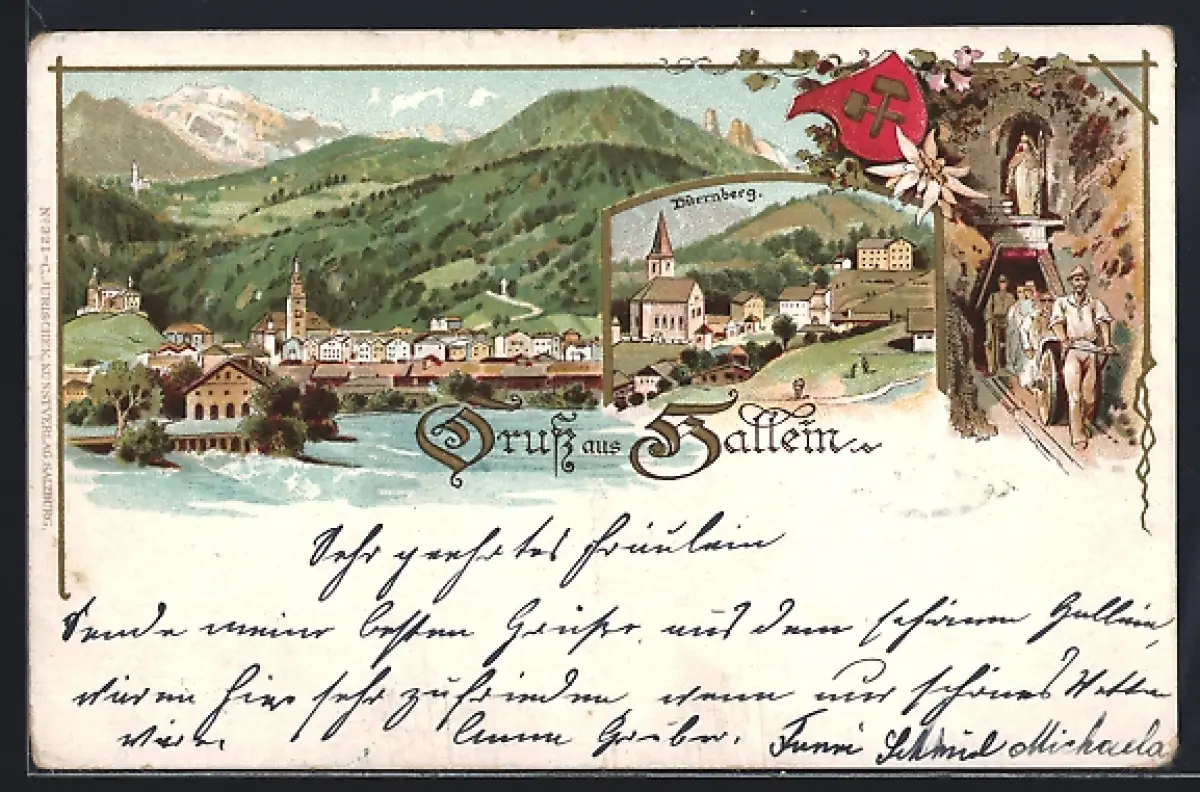 Dürrnberg.
Gruß aus Hallein
No 221 - C. JURISCHEK, KUNSTVERLAG, SALZBURG.
Sehr geehrtes Fräulein
Sende meine besten Grüße aus dem schönen Hallein,
wären hier sehr zufrieden wenn nur schönes Wetter
wäre. Anna Gruber. Fanni Schmid Michaela